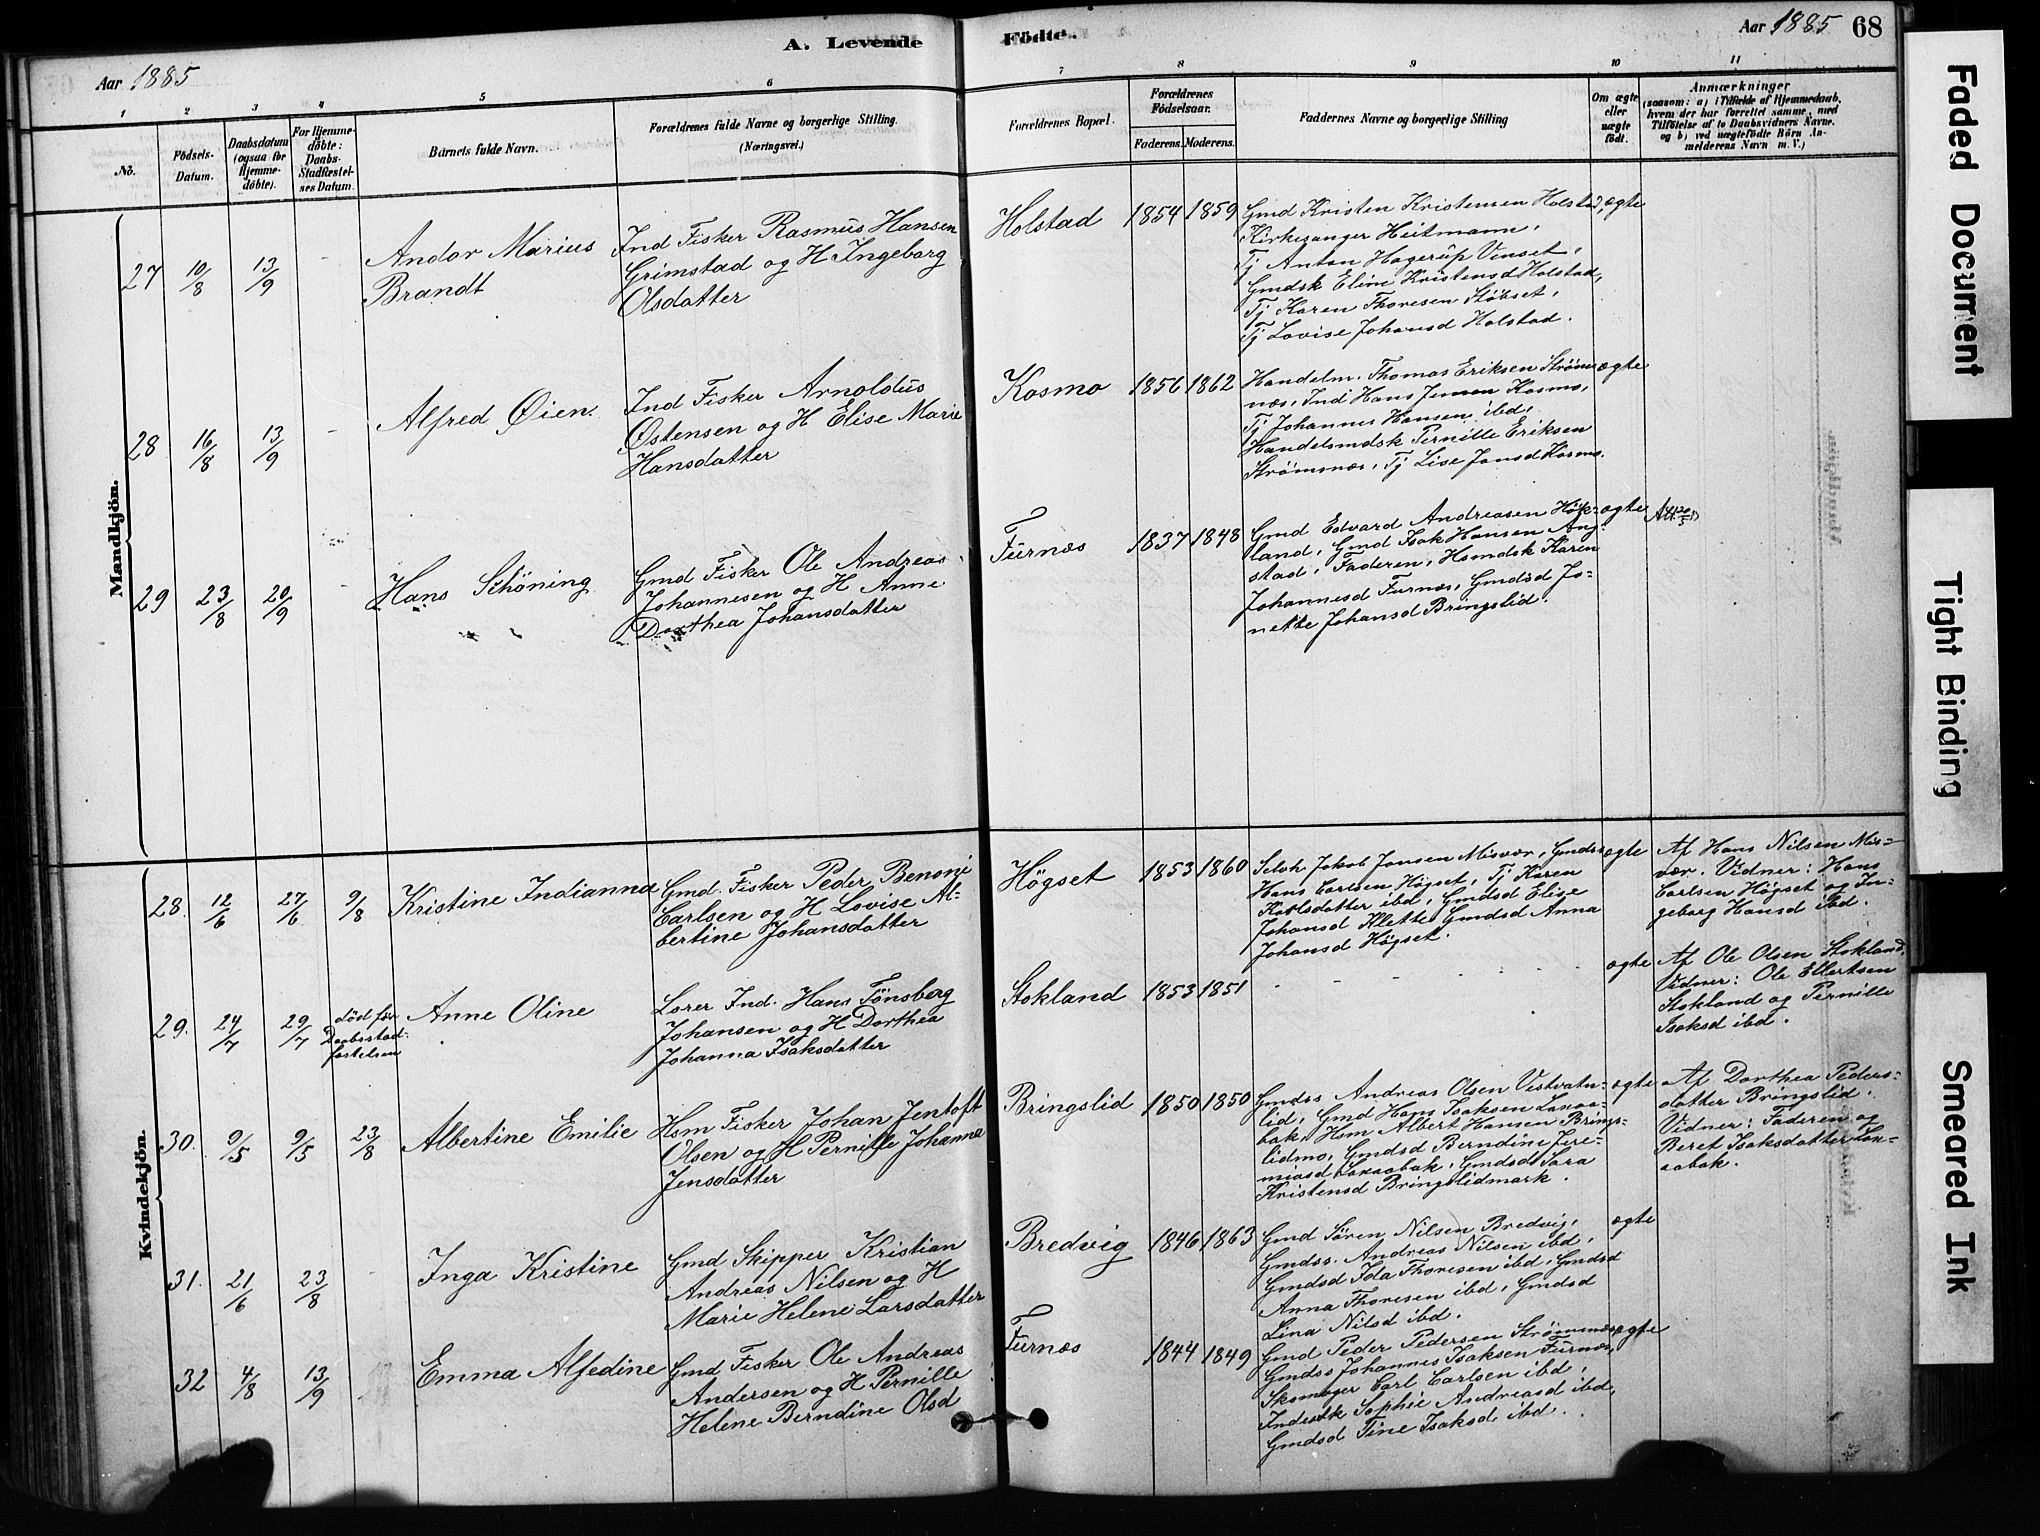 A. Levende Födte.
Aar 1885
Aar 1885 68
1 2 3 4 5 6 7 8 9 10 11
No.
Födsels-
Datum.
Daabsdatum
(ogsaa for
Hjemme-
döbte).
For Hjemme-
döbte:
Daabs-
Stadfæstel-
ses Datum.
Barnets fulde Navn.
Forældrenes fulde Navne og borgerlige Stilling.
(Næringsvei.)
Forældrenes Bopæl.
Forældrenes
Födselsaar.
Faderens. Moderens.
Faddernes Navne og borgerlige Stilling
Om ægte
eller
uægte
födt.
Anmærkninger
(saasom: a) i Tilfælde af Hjemmedaab,
hvem der har forrettet samme, med
Tilföielse af to Daabsvidners Navne.
og b) ved uægtefödte Börn An-
melderens Navn m. V.)
Mandkjön.
27 10/8 13/9 -
Andor Marius
Brandt
Ind Fisker Rasmus Hansen
Grimstad og H Ingeborg
Olsdatter
Holstad 1854 1859
Gmd Kristen Kristensen Holstad,
Kirkesanger Heitmann,
Tj Anton Hagerup Venset,
Gmdsk Eline Kristensd Holstad,
Tj Karen Thoresen Støbset,
Tj Lovise Johansd Holstad.
ægte
28 16/8 13/9 -
Alfred Øien.
Ind Fisker Arnoldus
Østensen og H Elise Marie
Hansdatter
Kosmo 1856 1862
Handelm. Thomas Eriksen Strøms-
næs, Ind Hans Jensen Kosmo,
Tj Johannes Hansen ibd,
Handelsmdsk Pernille Eriksen
Strømsnæs, Tj Lise Jonsd Kosmo.
ægte
29 23/8 20/9
Hans Schöning
Gmd Fisker Ole Andreas
Johannesen og H Anne
Dorthea Johansdatter
Furnæs 1837 1848
Gmd Edvard Andreasen Høk-
land, Gmd Isak Hansen Ang-
stad, Faderen, Hsmdsk Karen
Johannesd Furnæs, Gmdsd Jo-
nette Johansd Bringslid.
ægte
Kvindekjön.
28. 12/6 27/6 9/8
Kristine Indianna
Gmd. Fisker Peder Benoni
Carlsen og H Lovise Al-
bertine Johansdatter
Högset 1853 1860
Jakob Jonsen Misvær, Gmdss
Hans Carlsen Högset, Tj Karen
Karlsdatter ibd, Gmdsd Elise
Johansd Klette, Gmdsd Anna
Johansd Högset.
ægte
Af Hans Nilsen Mis-
vær. Vidner: Hans
Carlsen Högset og In-
geborg Hansd ibd.
29. 24/7 29/7
död før
Daabsstad-
fæstelsen
Anne Oline
Lorer Ind. Hans Tönsberg
Johansen og H Dorthea
Johanna Isaksdatter
Stokland 1853 1851 - - - -
ægte
Af Ole Olsen Stokland.
Vidner: Ole Ellertsen
Stokland og Pernille
Isaksd ibd.
30. 9/5 9/5 23/8
Albertine Emilie
Hsm Fisker Johan Jentoft
Olsen og H Pernille Johanna
Jensdatter
Bringslid 1850 1850
Gmdss Andreas Olsen Vestvatn-
lid, Gmd Hans Isaksen Laxaa-
bak, Hsm Albert Hansen Brings-
lidmo, Gmdsd Berndine Jere-
miasd Laxaabak, Gmdsd Sara
Kristensd Bringslidmark.
ægte
Af Dorthea Peders-
datter Bringslid.
Vidner: Faderen og
Beret Isaksdatter Lax-
aabak.
31. 21/6 23/8 -
Inga Kristine
Gmd Skipper Kristian
Andreas Nilsen og H
Marie Helene Larsdatter
Bredvig 1846 1863
Gmd Sören Nilsen Bredvig,
Gmdss. Andreas Nilsen ibd,
Gmdsd Ida Thoresen ibd, Gmdsd
Anna Thoresen ibd, Gmdsd
Lina Nilsd ibd.
ægte
32 4/8 13/9
Emma Alfedine
Gmd Fisker Ole Andreas
Andersen og H Pernille
Helene Berndine Olsd
Furnæs 1844 1849
Gmd Peder Pedersen Strømsnæs,
Gmdss Johannes Isaksen Furnæs,
Skomager Carl Carlsen ibd,
Indsk Sophie Andreasd ibd,
Gmdsd Tine Isaksd ibd.
ægte
Faded Document
Tight Binding
Smeared Ink